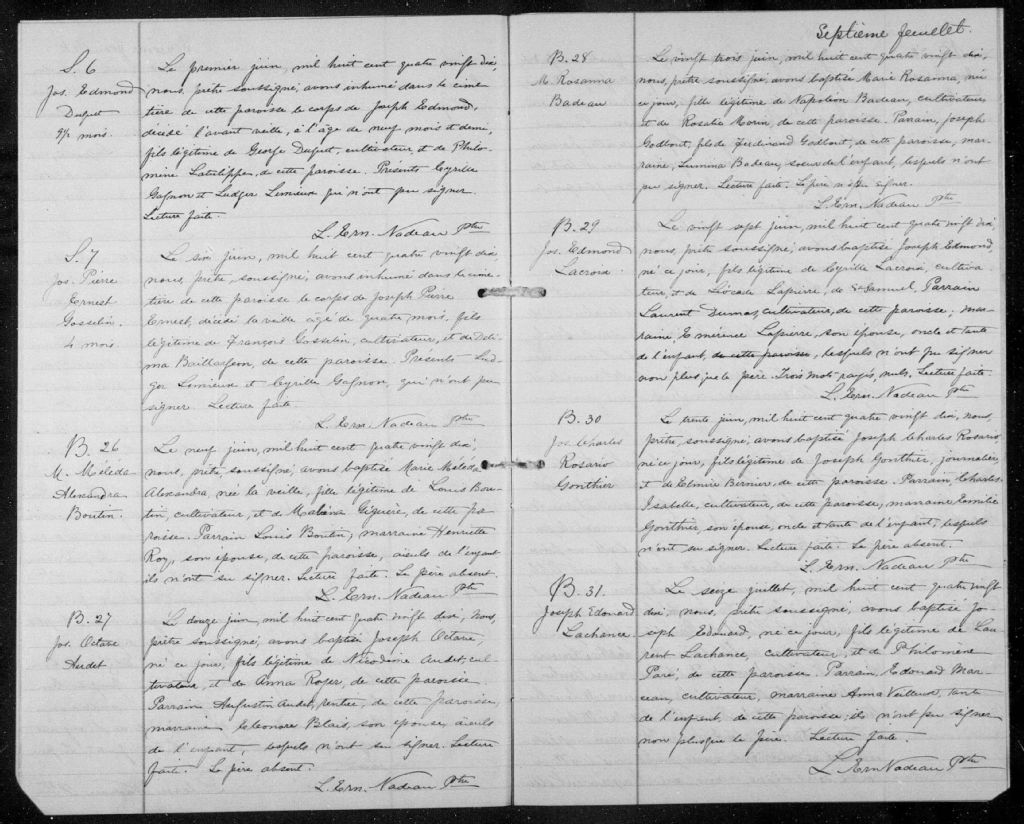 S. 6
Jos. Edmond
Duquet
9½ mois.
Le premier juin, mil huit cent quatre vingt dix,
nous, prêtre soussigné, avons inhumé dans le cime
tière de cette paroisse le corps de Joseph Edmond,
décédé l'avant veille, à l'âge de neuf mois et demi,
fils légitime de George Duquet, cultivateur, et de Philo-
mène Latulippe, de cette paroisse. Présents Cyrille
Gagnon et Ludger Lemieux qui n'ont pu signer.
Lecture faite.
L. Ern. Nadeau Ptre
S. 7
Jos. Pierre
Ernest
Gosselin.
4 mois.
Le six juin, mil huit cent quatre vingt dix,
nous, prêtre, soussigné, avons inhumé dans le cime-
tière de cette paroisse le corps de Joseph Pierre
Ernest, décédé la veille âgé de quatre mois, fils
légitime de François Gosselin, cultivateur, et de Déli-
ma Baillargeon, de cette paroisse. Présents Lud-
ger Lemieux et Cyrille Gagnon, qui n'ont pu
signer. Lecture faite.
L. Ern. Nadeau Ptre
B. 26
M. Méléda
Alexandra
Boutin.
Le neuf juin, mil huit cent quatre vingt dix,
nous, prêtre, soussigné, avons baptisé Marie Méléda
Alexandra, née la veille, fille légitime de Louis Bou-
tin, cultivateur, et de Malvina Giguère, de cette pa
roisse. Parrain Louis Boutin, marraine Henriette
Roy, son épouse, de cette paroisse, aïeuls de l'enfant
ils n'ont su signer. Lecture faite. Le père absent.
L. Ern. Nadeau Ptre
B. 27
Jos. Octave
Audet
Le douze juin, mil huit cent quatre vingt dix, nous,
prêtre soussigné, avons baptisé Joseph Octave,
né ce jour, fils légitime de Nicodème Audet, cul-
tivateur, et de Anna Royer, de cette paroisse.
Parrain Augustin Audet, rentier, de cette paroisse,
marraine Eléonore Blais, son épouse, aïeuls
de l'enfant, lesquels n'ont su signer. Lecture
faite. Le père absent.
L. Ern. Nadeau Ptre
Septième feuillet.
B. 28
M. Rosanna
Badeau
Le vingt trois juin, mil huit cent quatre vingt dix,
nous, prêtre soussigné, avons baptisé Marie Rosanna, née
ce jour, fille légitime de Napoléon Badeau, cultivateur
et de Rosalie Morin, de cette paroisse. Parrain, Joseph
Godbout, fils de Ferdinand Godbout, de cette paroisse, mar-
raine, Lumina Badeau, soeur de l'enfant, lesquels n'ont
pu signer. Lecture faite. Le père n'a pu signer.
L. Ern. Nadeau Ptre
B. 29
Jos. Edmond
Lacroix
Le vingt sept juin, mil huit cent quatre vingt dix,
nous, prêtre soussigné, avons baptisé Joseph Edmond,
né ce jour, fils légitime de Cyrille Lacroix, cultiva-
teur, et de Léocade Lapierre, de St Samuel, Parrain
Laurent Dumas, cultivateur, de cette paroisse, mar
raine Emérence Lapierre, son épouse, oncle et tante
de l'enfant, de cette paroisse, lesquels n'ont pu signer
non plus que le père. Trois mots rayés, nuls. Lecture faite.
L. Ern. Nadeau Ptre
B. 30
Jos. Charles
Rosario
Gonthier
Le trente juin, mil huit cent quatre vingt dix, nous,
prêtre, soussigné, avons baptisé Joseph Charles Rosario,
né ce jour, fils légitime de Joseph Gonthier, journalier,
et de Elmire Bernier, de cette paroisse. Parrain, Charles
Isabelle, cultivateur, de cette paroisse, marraine Emilie
Gonthier, son épouse, oncle et tante de l'enfant, lesquels
n'ont su signer. Lecture faite. Le père absent.
L. Ern. Nadeau Ptre
B. 31.
Joseph Edouard
Lachance
Le seize juillet, mil huit cent quatre vingt
dix, nous, prêtre soussigné, avons baptisé Jo-
seph Edouard, né ce jour, fils légitime de Lau
rent Lachance, cultivateur, et de Philomène
Paré, de cette paroisse. Parrain, Edouard Mar-
ceau, cultivateur, marraine Anna Veilleux, tante
de l'enfant, de cette paroisse; ils n'ont pu signer
non plus que le père. Lecture faite.
L. Ern Nadeau Ptre